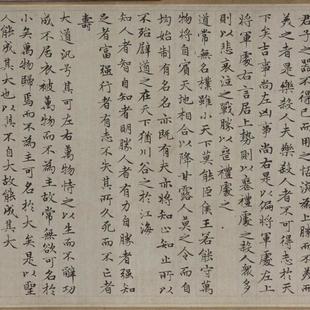 君子之器不得已而用之恬淡爲上勝而不美而
美之者是樂殺人夫樂殺人者不可得志於天
下矣吉事尚左凶事尚右是以偏將軍處左上
將軍處右言居上勢則以喪禮處之殺人衆多
則以悲哀泣之戰勝以喪禮處之
道常無名樸雖小天下莫能臣侯王若能守萬
物將自賓天地相合以降甘露人莫之令而自
均始制有名名亦既有夫亦將知止知止所以
不殆譬道之在天下猶川谷之於江海
知人者智自知者明勝人者有力自勝者强知
足者富强行者有志不失其所久死而不亡者
壽
大道汎兮其可左右萬物恃之以生而不辭功
成不居衣被萬物而不爲主故常無欲可名於
小矣萬物歸焉而不爲主可名於大矣是以聖
人能成其大也以其不自大故能成其大